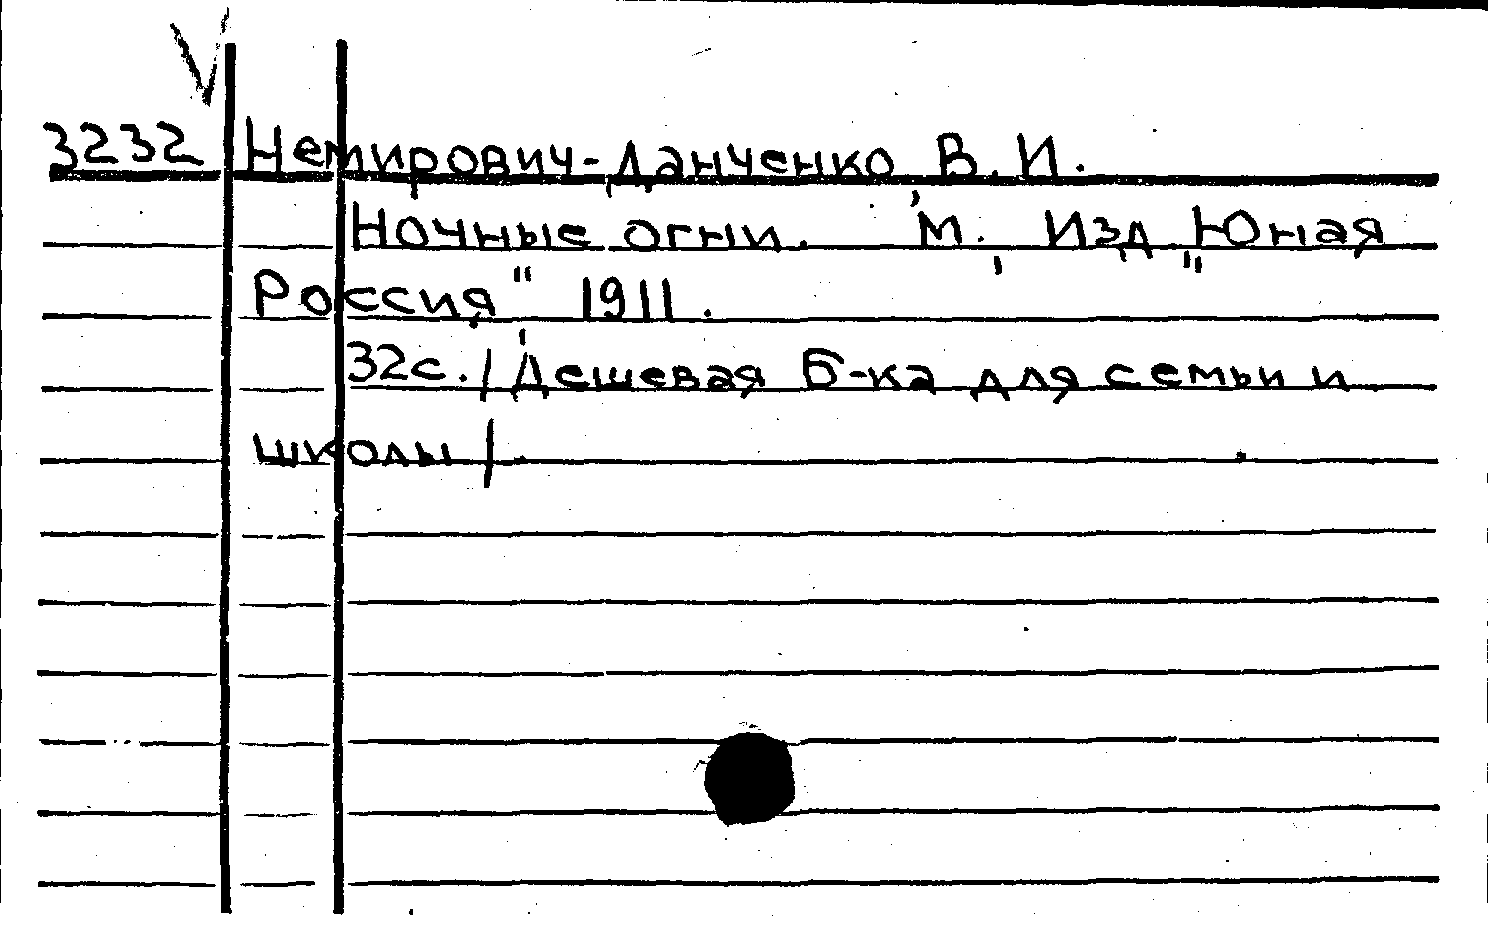 3232 Немирович-Данченко, В. И.
Ночные огни. М., Изд. „Юная
Россия", 1911.
32с. /Дешевая Б-ка для семьи и
школы/.